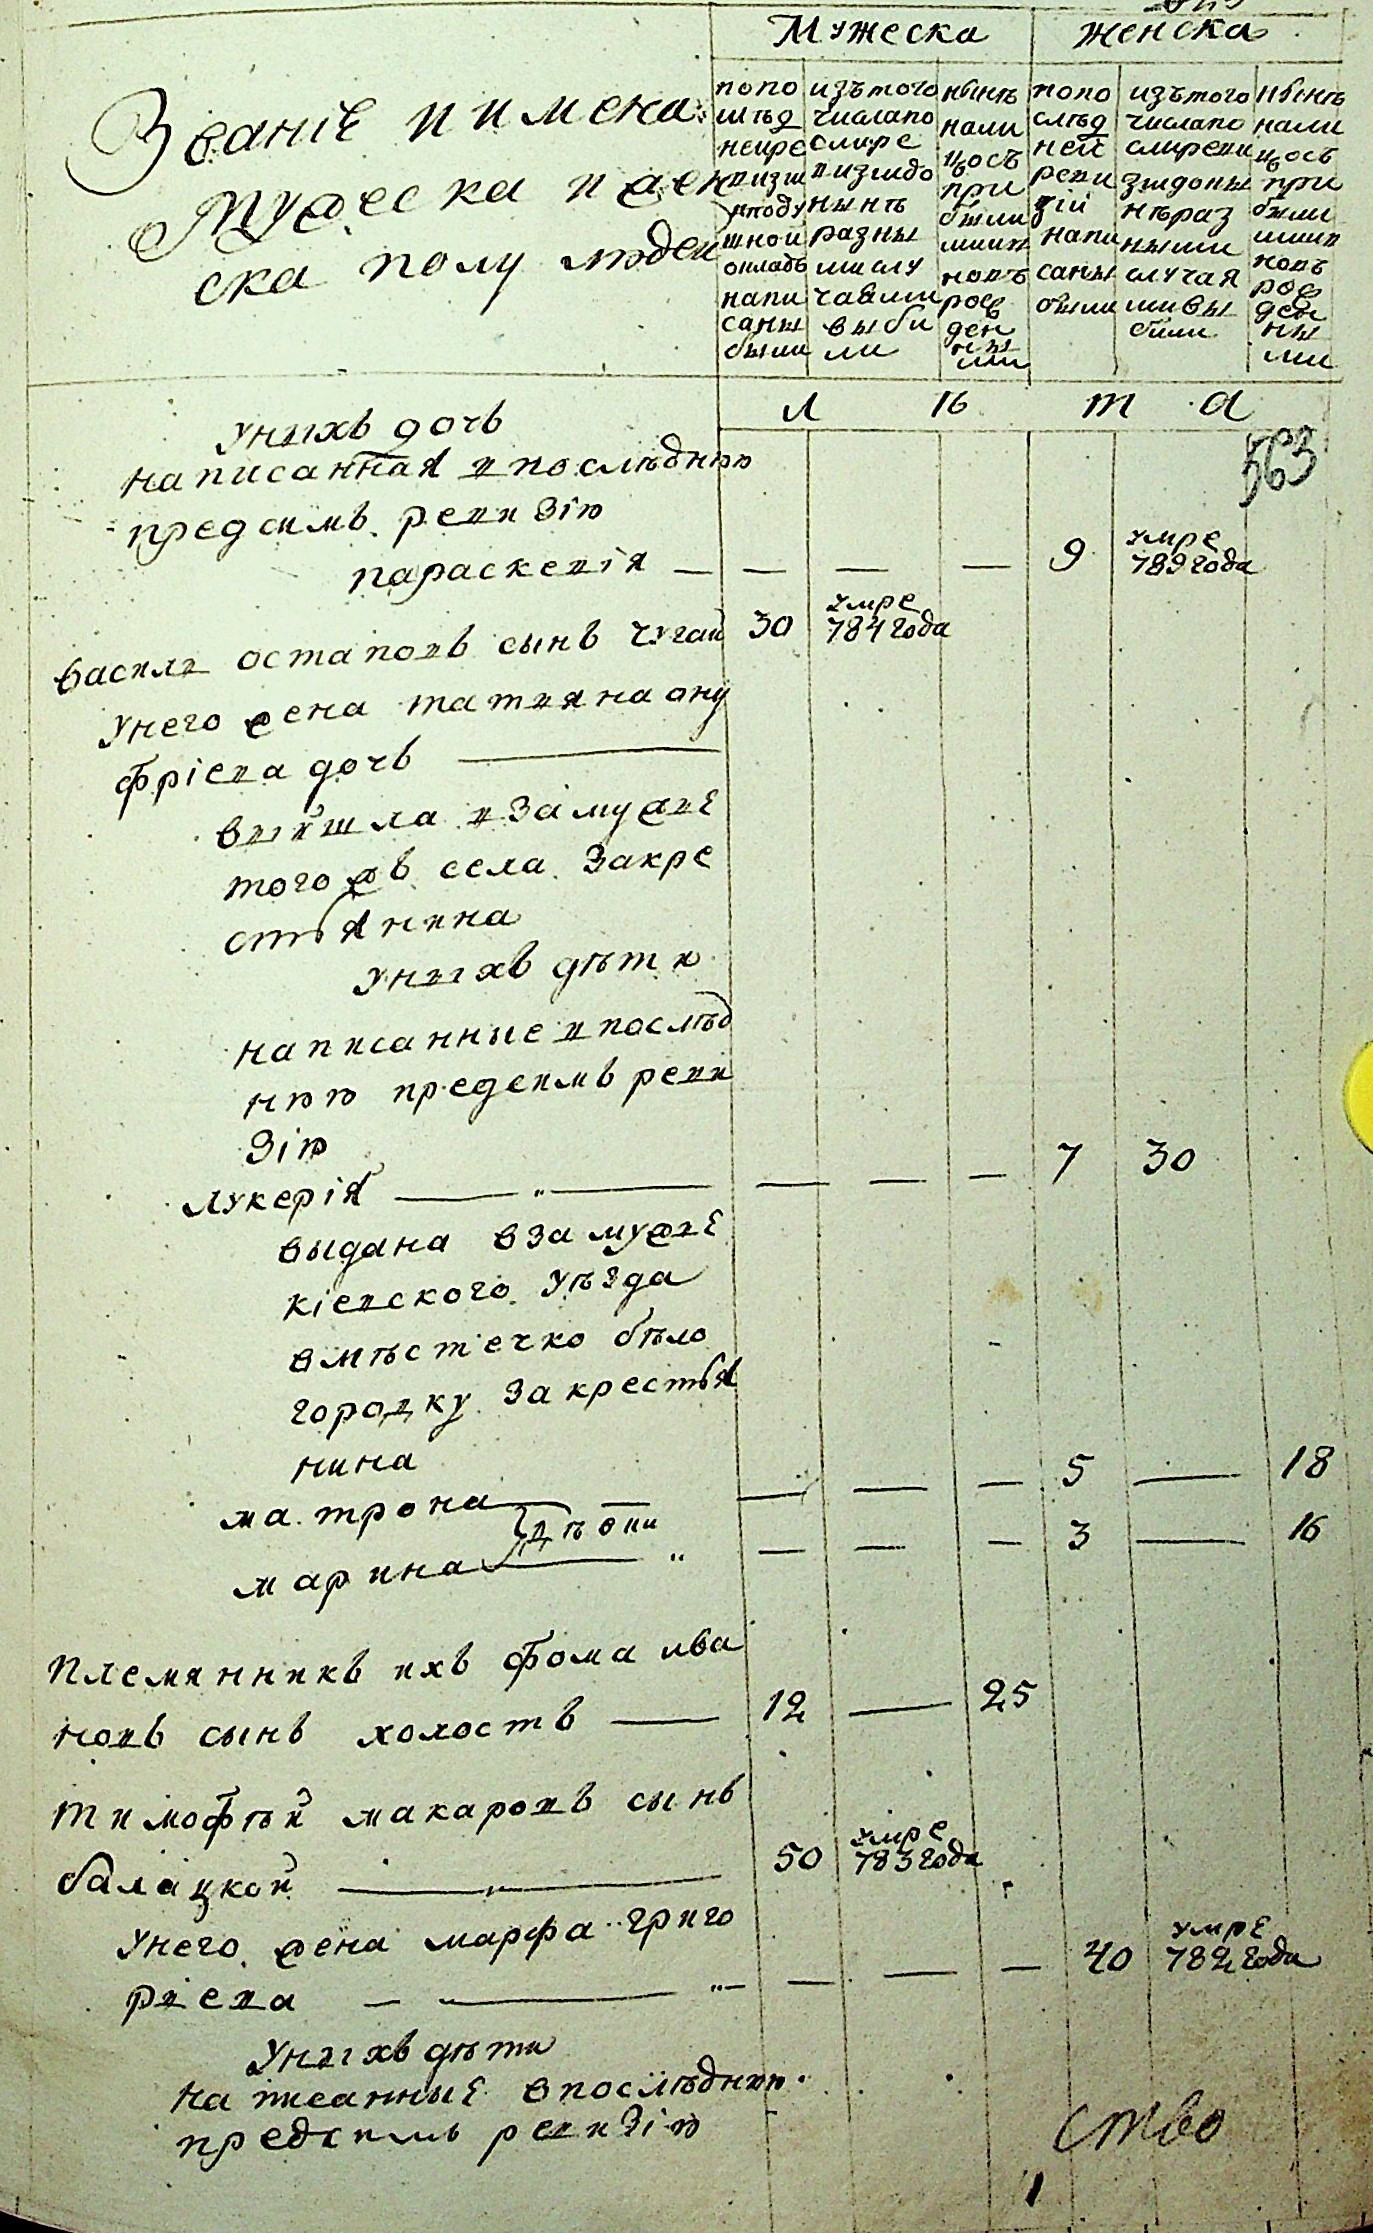 Мужеска Женска
Званіе и имена
Мужеска и жен
ска полу людей
попо
слѣд
ней ре
визіи
иподу
шной
окладъ
напи
саны
были
изътого
числапо
слире
визіидо
нынѣ
разны
ми слу
чаями
выбы
ли
нынѣ
нали
цосъ
при
былы
мии
новъ
рож
ден
ны
ми
попо
слѣд
ней
реви
зіи
напи
саны
были
изътого
числапо
слиреви
зіидоны
нѣраз
ными
случая
мивы
были
нынѣ
нали
цосъ
при
былы
мии
новъ
рож
ден
ны
ми
Л ѣ т а
563
Уныхъ дочь
написанная впослѣднюю
предсимъ ревизію
параскевія — — — — 9 умре 789 года
василь остаповъ сынъ чугай 30 умре 784 года
Унего жена татияна ону
фріева дочь —
выйшла взамужье
тогожъ села закре
стьянина
Уныхъ дѣти
написанные впослѣд
нюю предсимъ реви
зію
лукерія — „ — — — — 7 30
выдана взамужье
кіевского уѣзда
вмѣстечко бѣло
городку закрестья
нина
матрона — — — — 5 — 18
дѣвки
марина — „ — — — 3 — 16
племянникъ ихъ фома ива
новъ сынъ холостъ — 12 — 25
тимофѣй макаровъ сынъ
балацкой — „ — 50 умре 783 года
Унего жена марфа григо
риева — — „ — — — — 40 умре 782 года
Уныхъ дѣти
написанные впослѣднюю
предсимъ ревизію
ство